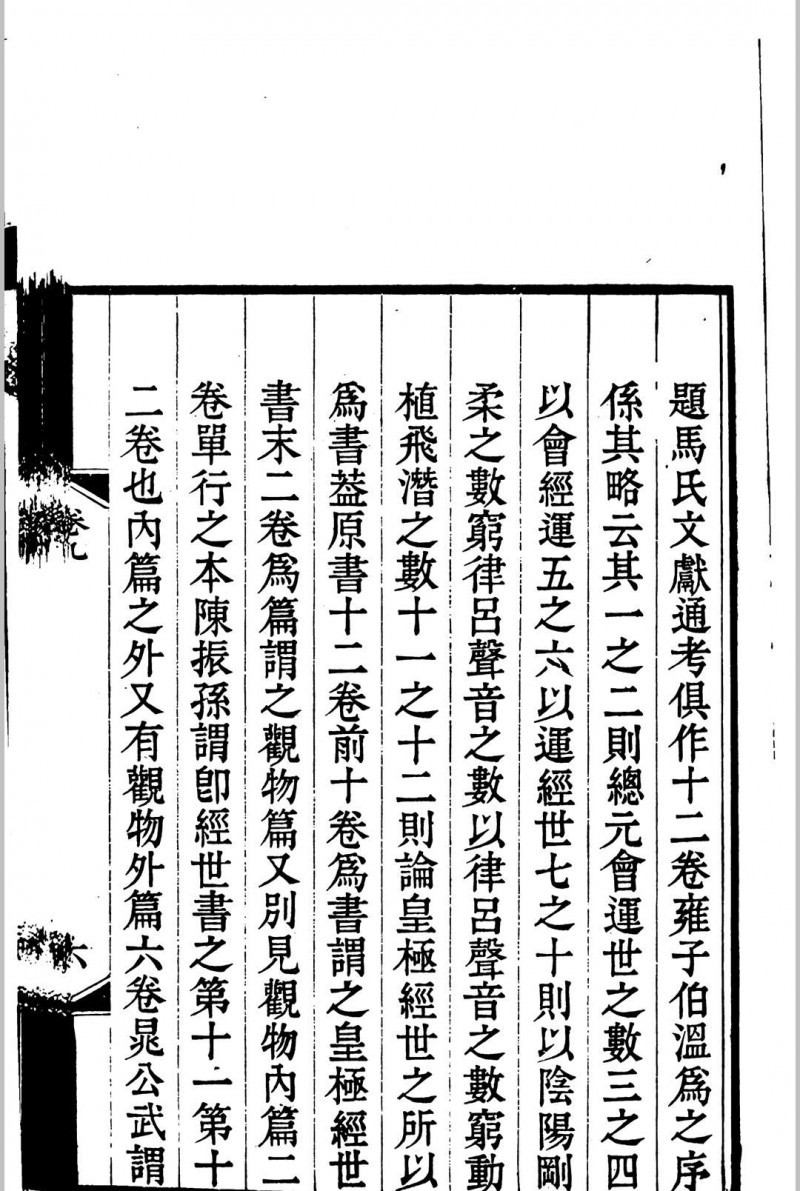 題馬氏文獻通考俱作十二卷雍子伯溫爲之序
係其略云其一之二則總元會運世之數三之四
以會經運五之六以運經世七之十則以陰陽剛
柔之數窮律呂聲音之數以律呂聲音之數窮動
植飛潛之數十一之十二則論皇極經世之所以
爲書葢原書十二卷前十卷爲書謂之皇極經世
書末二卷爲篇謂之觀物篇又別見觀物內篇二
卷單行之本陳振孫謂卽經世書之第十一第十
二卷也內篇之外又有觀物外篇六卷晁公武謂
卷九
六